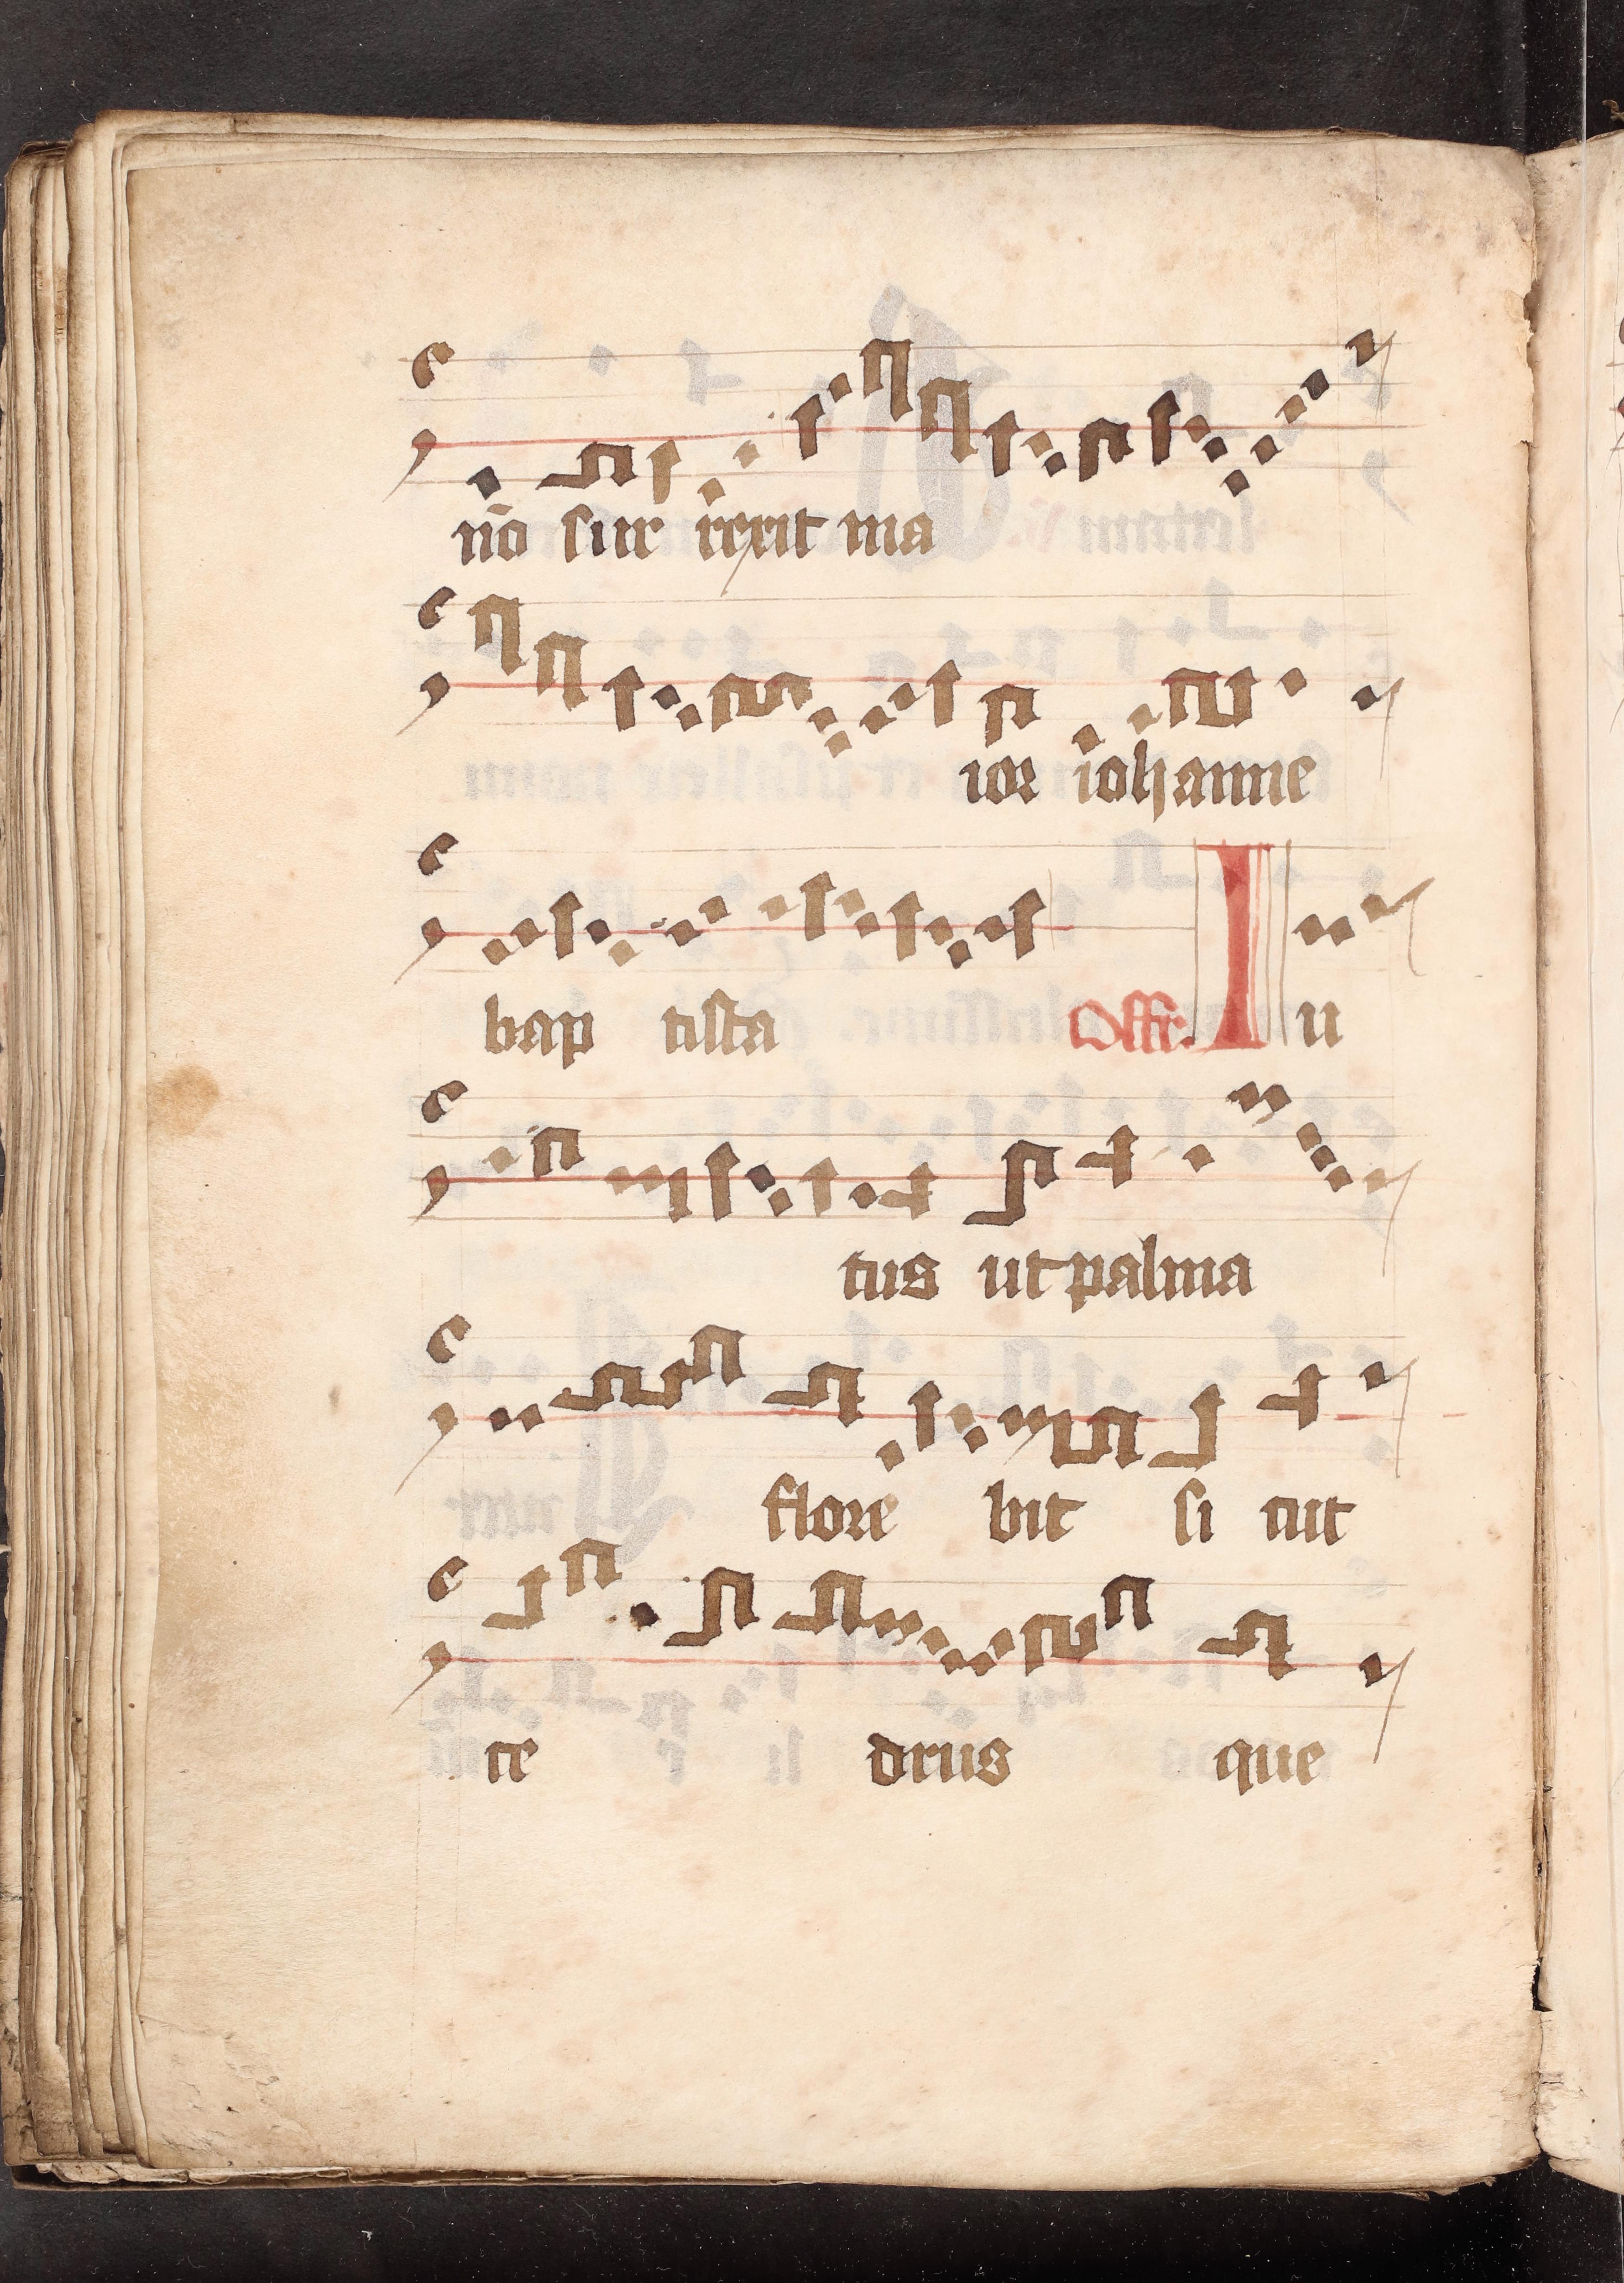 nō sur rexit ma
ior iohanne
bap tista Offr. I u
tus ut palma
flore bit si cut
ce drus que